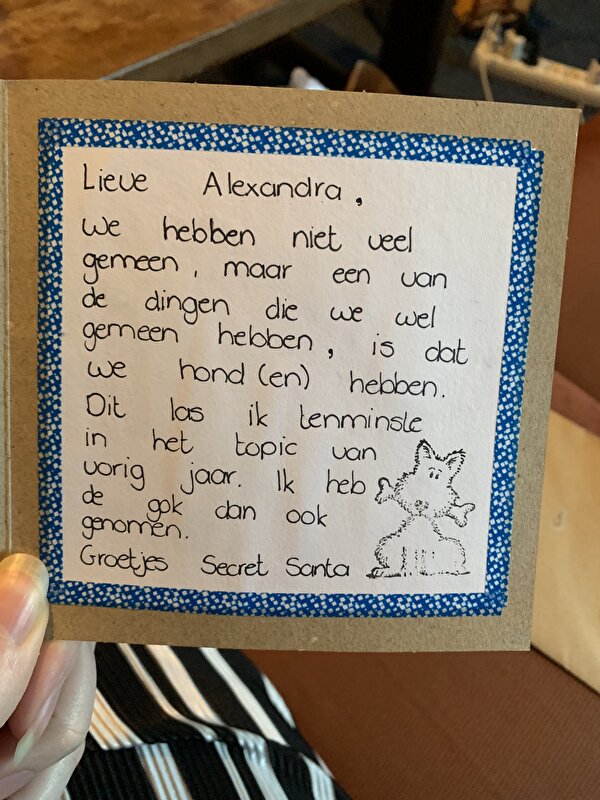 Lieve Alexandra,
We hebben niet veel
gemeen, maar een van
de dingen die we wel
gemeen hebben, is dat
we hond(en) hebben.
Dit las ik tenminste
in het topic van
vorig jaar. Ik heb
de gok dan ook
genomen.
Groetjes Secret Santa